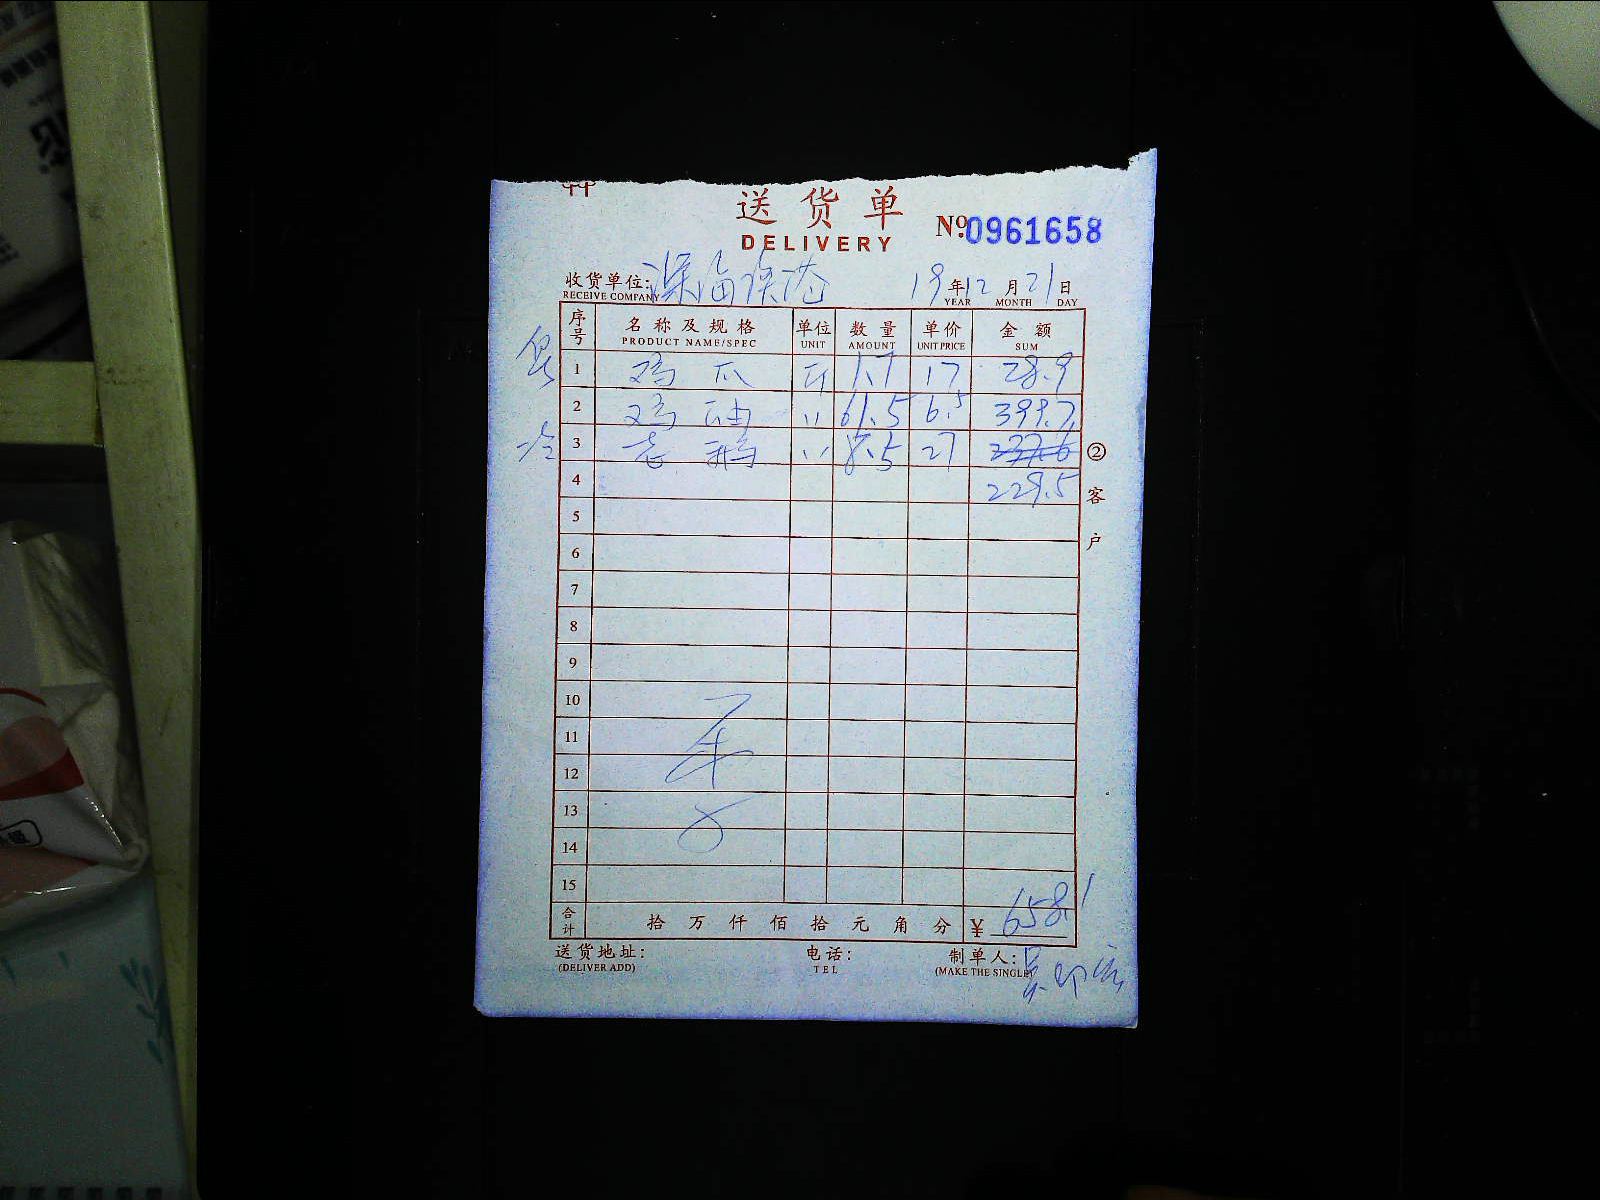 送货单
DELIVERY
№:0961658
收货单位:
RECEIVE COMPANY
19年12月21日
YEAR MONTH DAY
序号 名称及规格 单位 数量 单价 金额
PRODUCT NAME/SPEC UNIT AMOUNT UNIT PRICE SUM
1 鸡爪 斤 1.7 17 28.9
2 鸡油 〃 61.5 6.5 399.7
3 老鹅 〃 8.5 27
4 229.5
5
6
7
8
9
10
11
12
13
14
15
合计 拾万仟佰拾元角分 ¥ 658.1
②客户
送货地址: 电话: 制单人:
(DELIVER ADD) TEL (MAKE THE SINGLE)